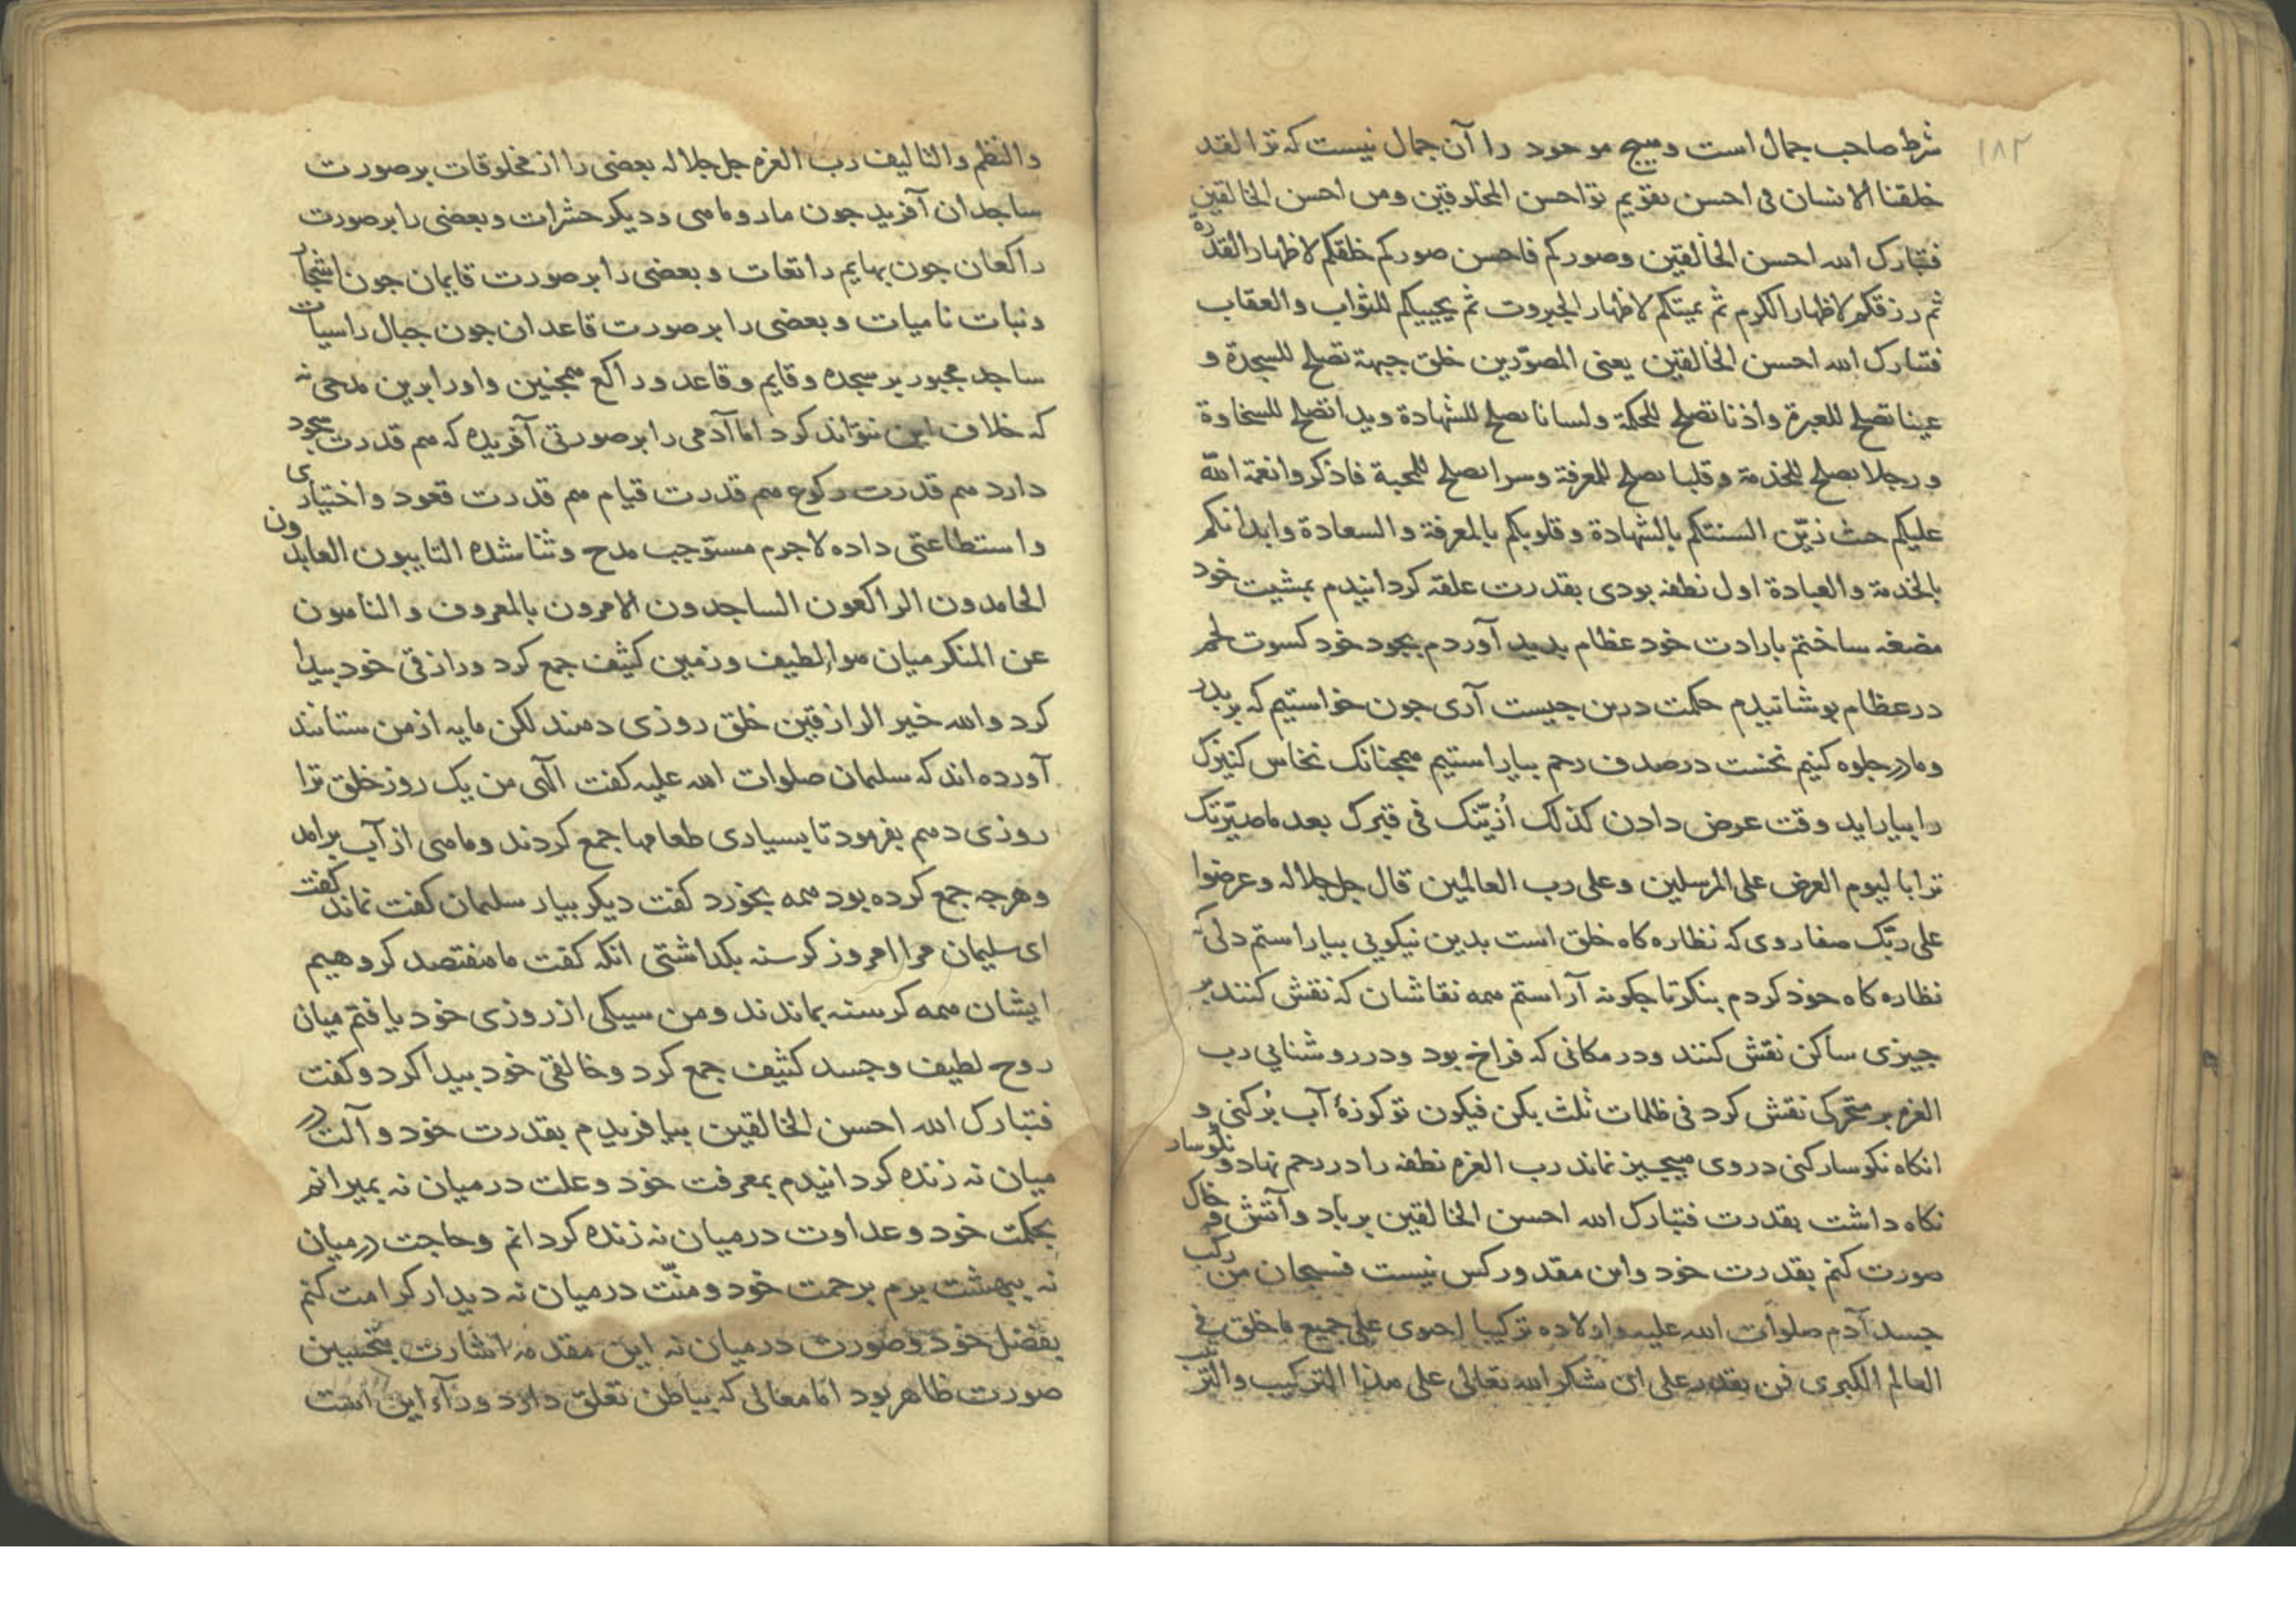 ۱۸۲
شرط صاحب جمال است وهیج موجود را آن جمال نیست که ترا لقد
خلقنا الانسان فی احسن تقویم تو احسن المخلوقین ومن احسن الخالقین
فتبارک الله احسن الخالقین وصورکم فاحسن صورکم خلقکم لاظهار القدرة
ثم رزقکم لاظهار الکرم ثم یمیتکم لاظهار الجبروت ثم یحییکم للثواب والعقاب
فتبارک الله احسن الخالقین یعنی المصوّرین خلق جبهة تصلح للسجدة و
عینا تصلح للعبرة واذنا تصلح للحکمة ولسانا تصلح للشهادة ویدا تصلح للسخاوة
ورجلا تصلح للخدمة وقلبا تصلح للمعرفة وسرا تصلح للمحبة فاذکروا نعمة الله
علیکم حیث زیّن السنتکم بالشهادة وقلوبکم بالمعرفة والسعادة وابدانکم
بالخدمة والعبادة اول نطفه بودی بقدرت علقه کردانیدم بمشیت خود
مضغه ساختم بارادت خود عظام بدید آوردم بجود خود کسوت لحم
در عظام بوشانیدم حکمت درین جیست آری جون خواستیم که بر بدر
ومادر جلوه کنیم نخست در صدف رحم بیاراستیم همجنانک نخاس کنیزک
را بیاراید وقت عرض دادن کذلک اُزیّنک فی قبرک بعد ما صیّرتک
ترابا لیوم العرض علی المرسلین وعلی رب العالمین قال جل جلاله وعرضوا
علی ربّک صفا روی که نظاره کاه خلق است بدین نیکویی بیاراستم دلی که
نظاره کاه خود کردم بنکر تا جکونه آراستم همه نقاشان که نقش کنند بر
جیزی ساکن نقش کنند ودر مکانی که فراخ بود ودر روشنایی رب
العزه بر متحرکی نقش کرد فی ظلمات ثلث بکن فیکون تو کوزۀ آب بُر کنی و
انکاه نکوسار کنی در وی هیجیز نماند رب العزه نطفه را در رحم نهاد و نکوسار
نکاه داشت بقدرت فتبارک الله احسن الخالقین بر باد وآتش و خاک
صورت کنم بقدرت خود واین مقدور کس نیست فسبحان من رکب
جسد آدم صلوات الله علیه واولاده ترکیبا احوی علی جمیع ما خلق فی
العالم الکبری فمن یقدر علی ان شکر الله تعالی علی هذا الترکیب والترتیب
والنظم والتالیف رب العزه جل جلاله بعضی را از مخلوقات بر صورت
ساجدان آفرید جون مار وماهی ودیکر حشرات وبعضی را بر صورت
راکعان جون بهایم راتعات وبعضی را بر صورت قایمان جون اشجار
ونبات نامیات وبعضی را بر صورت قاعدان جون جبال راسیات
ساجد مجبور بر سجده وقایم وقاعد وراکع همجنین واو را برین مدحی نه
که خلاف این نتواند کرد اما آدمی را بر صورتی آفریده که هم قدرت سجود
دارد هم قدرت رکوع هم قدرت قیام هم قدرت قعود واختیاری
واستطاعتی داده لاجرم مستوجب مدح وثنا شده التایبون العابدون
الحامدون الراکعون الساجدون الامرون بالمعروف والناهون
عن المنکر میان هوا لطیف وزمین کثیف جمع کرد ورازقی خود بیدا
کرد والله خیر الرازقین خلق روزی دهند لکن مایه از من ستانند
آورده اند که سلیمان صلوات الله علیه کفت الهی من یک روز خلق ترا
روزی دهم بفرمود تا بسیاری طعامها جمع کردند وماهی از آب برامد
وهرجه جمع کرده بود همه بخورد کفت دیکر بیار سلیمان کفت نماند کفت
ای سلیمان مرا امروز کرسنه بکداشتی انکه کفت ما هفتصد کروهیم
ایشان همه کرسنه بماندند ومن سیکی از روزی خود یافتم میان
روح لطیف وجسد کثیف جمع کرد وخالقی خود بیدا کرد وکفت
فتبارک الله احسن الخالقین بیافریدم بقدرت خود وآلت در
میان نه زنده کردانیدم بمعرفت خود وعلت در میان نه بمیرانم
بحکمت خود وعداوت در میان نه زنده کردانم وحاجت در میان
نه ببهشت برم برحمت خود ومنّت در میان نه دیدار کرامت کنم
بفضل خود وصورت در میان نه این مقدمه اشارت بتحسین
صورت ظاهر بود اما معالی که بباطن تعلق دارد ورآء این است